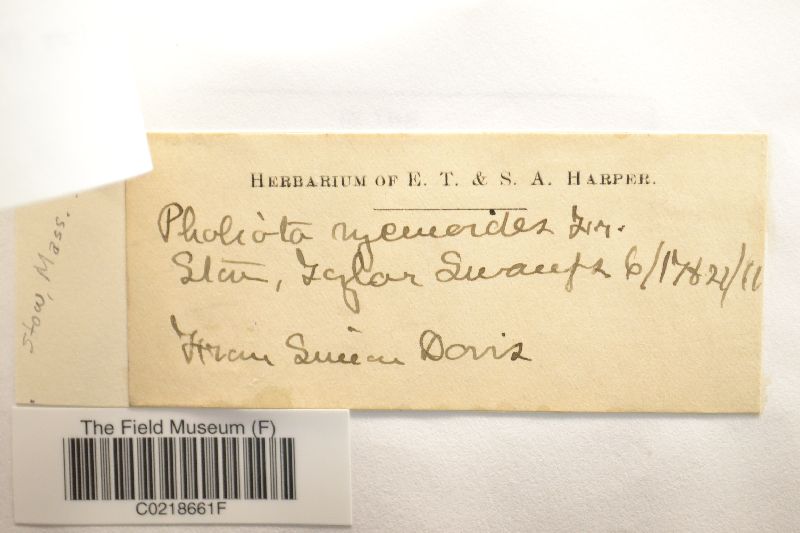 HERBARIUM OF E. T. & S. A. HARPER.
Pholiota Fr.
Stow, Taylor Swamps 6/17&21/11
From Simon Davis
Stow, Mass.
The Field Museum (F)
C0218661F